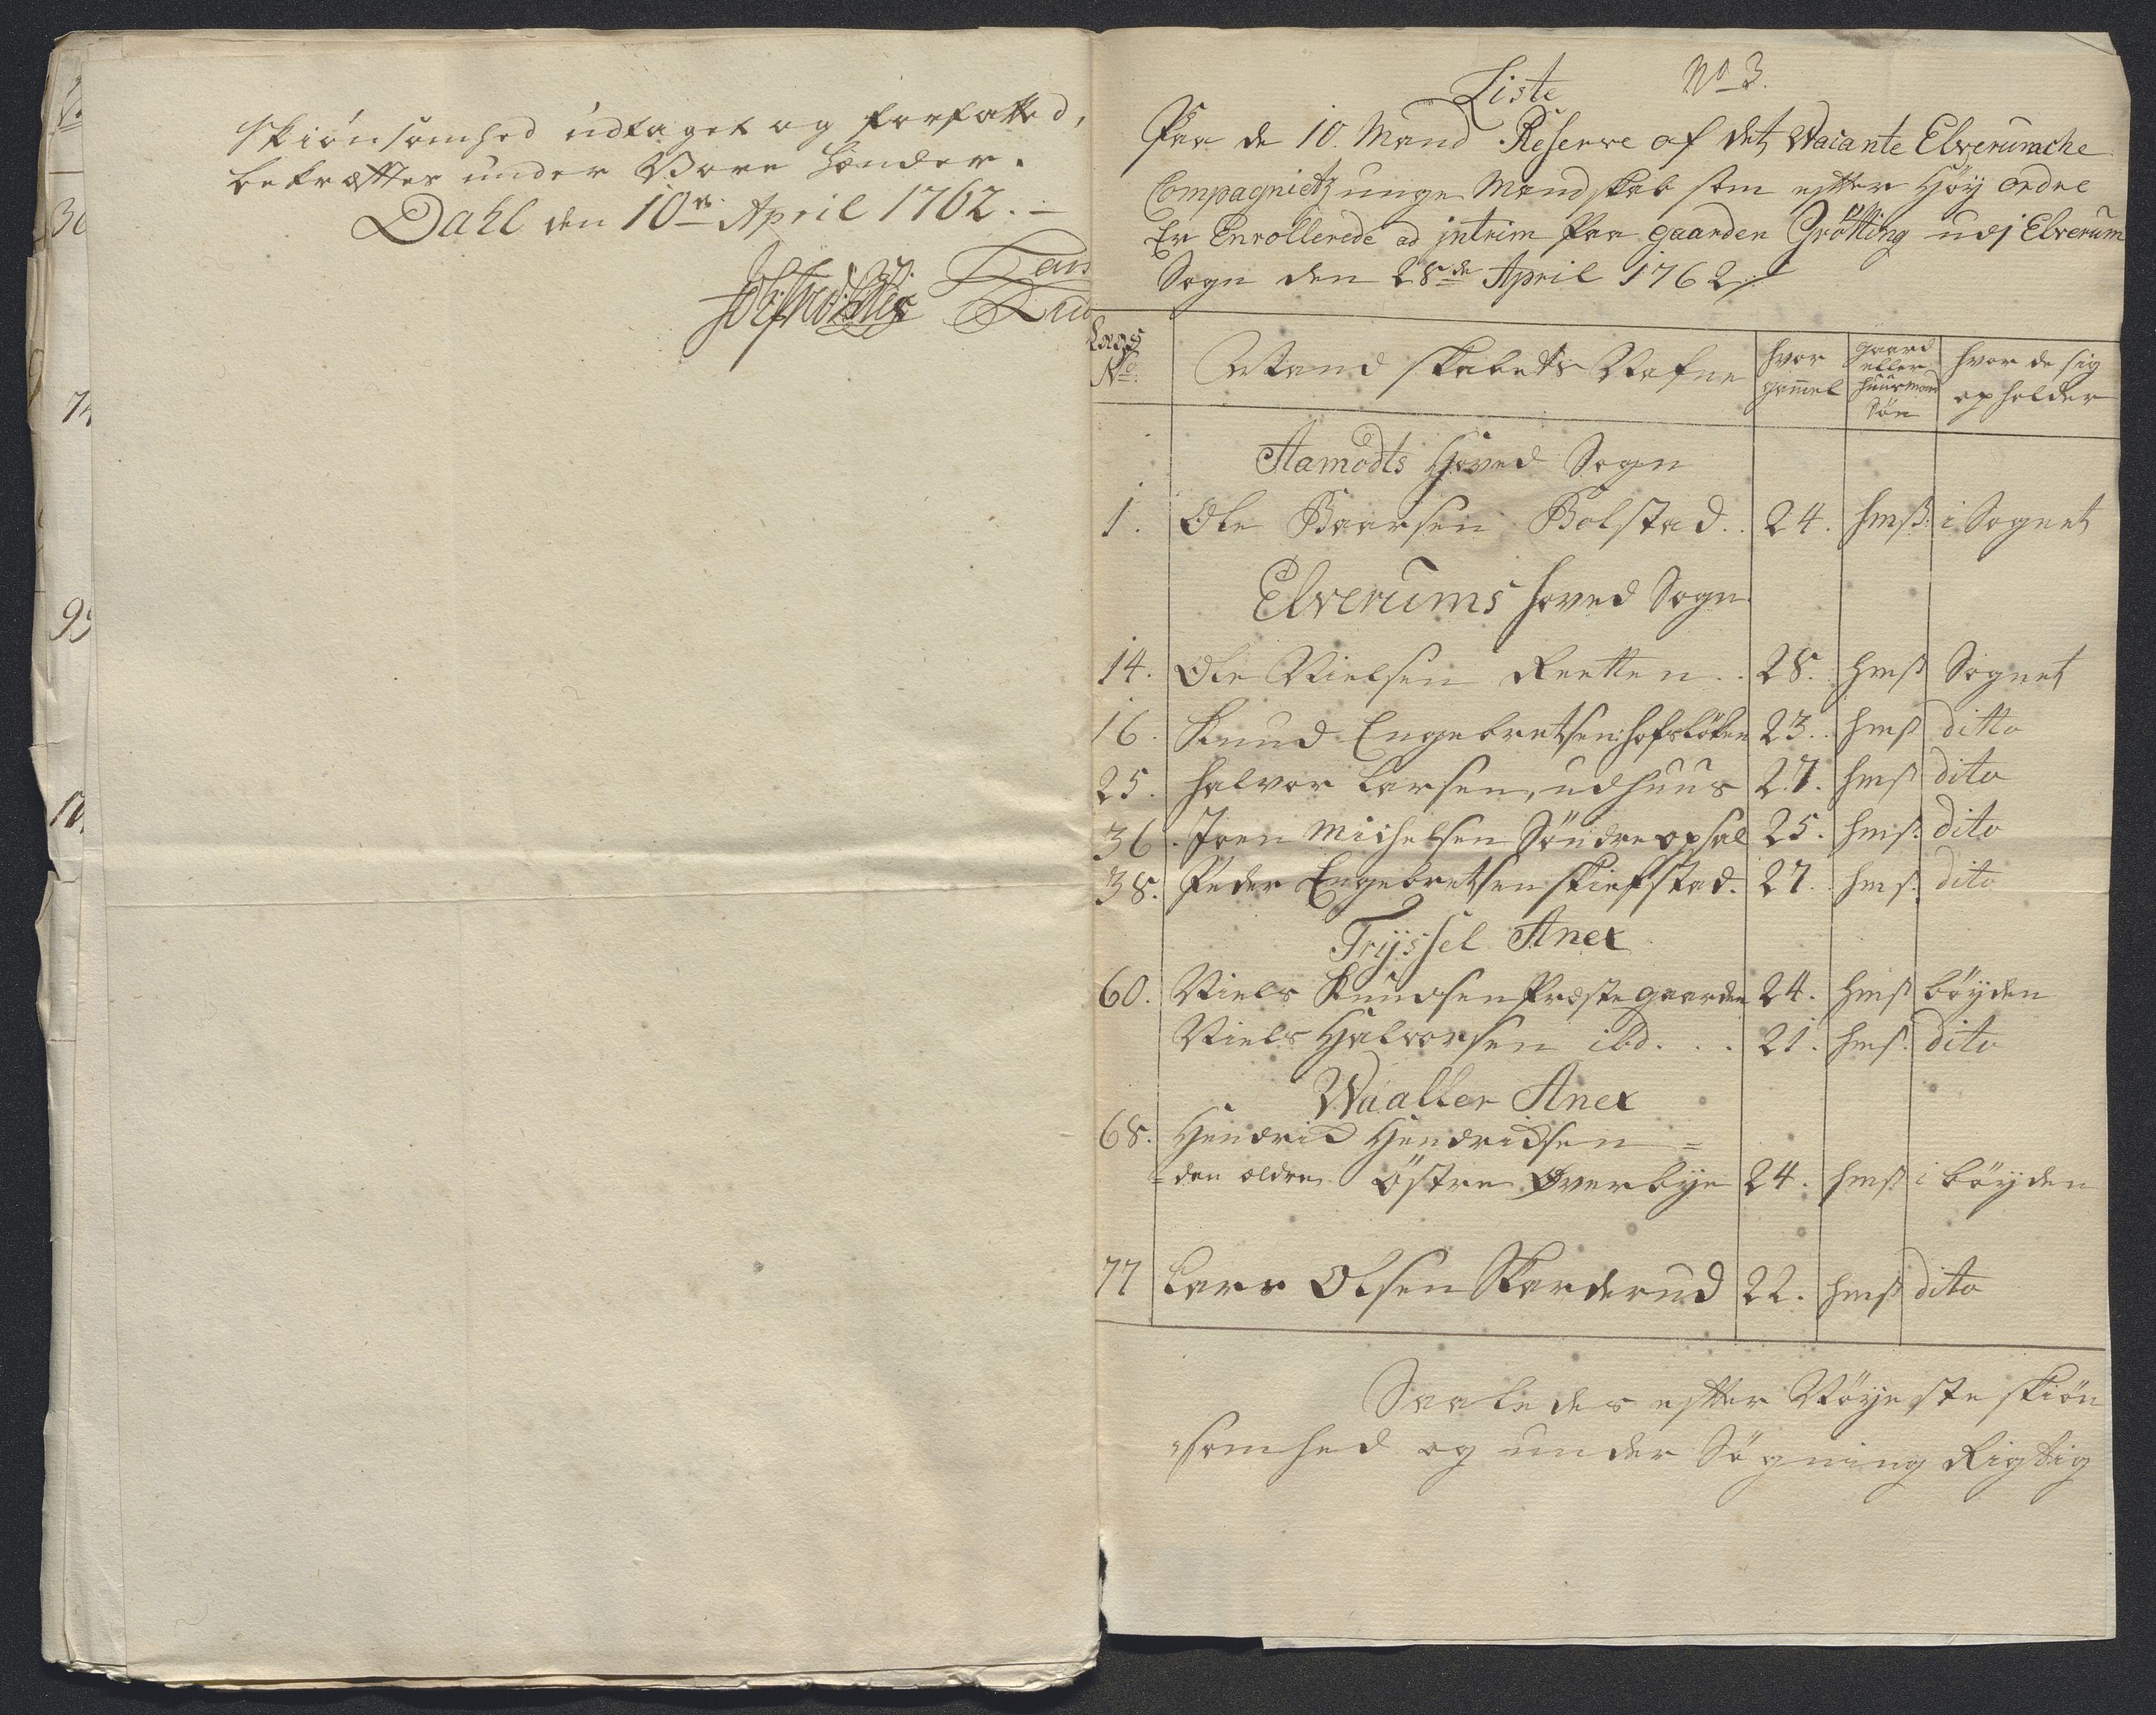 Skiønsomhed udtaget og forfatted,
bekræfter under Vore Hænder.
Dahl den 10de April 1762. -
Liste No 3.
Paa de 10. Mand Reserve af det Vacante Elverumsche
Compagnietz unge Mandskab som efter Høy ordre
Er Enrollerede ad jntrim Paa gaarden Grötting udj Elverum
Sogn den 28de April 1762
Lags No. Mand skabets Nafne hvor gam̄el gaard eller huusmand Søn hvor de sig opholder
Aamodts Hoved Sogn
1. Ole Baarsen Bolstad. 24. hmß: i Sognet
Elverums hoved Sogn
14. Ole Nielsen 28. hmß Sognet
16. Knud Engebretsen 23. hmß ditto
25. Halvor Larsen, udhuus 27. hmß dito
36. Joen Michelsen Söndre opsal 25. hmß. dito
38. Peder Engebretsen Skiefstad. 27. hmß. dito
Tryssel Anex
60. Niels Knudsen Præstegaarden 24. hmß böyden
Niels Halvorsen ibd. . . 21. hmß. dito
Waaller Anex
68. Hendrick Hendricksen =
= den eldre Östre Øverbye 24. hmß i böyden
77 Lars Olsen Skarderud 22. hmß dito
Saaledes efter Nöyeste skiön
somhed og under Sögning Rigtig